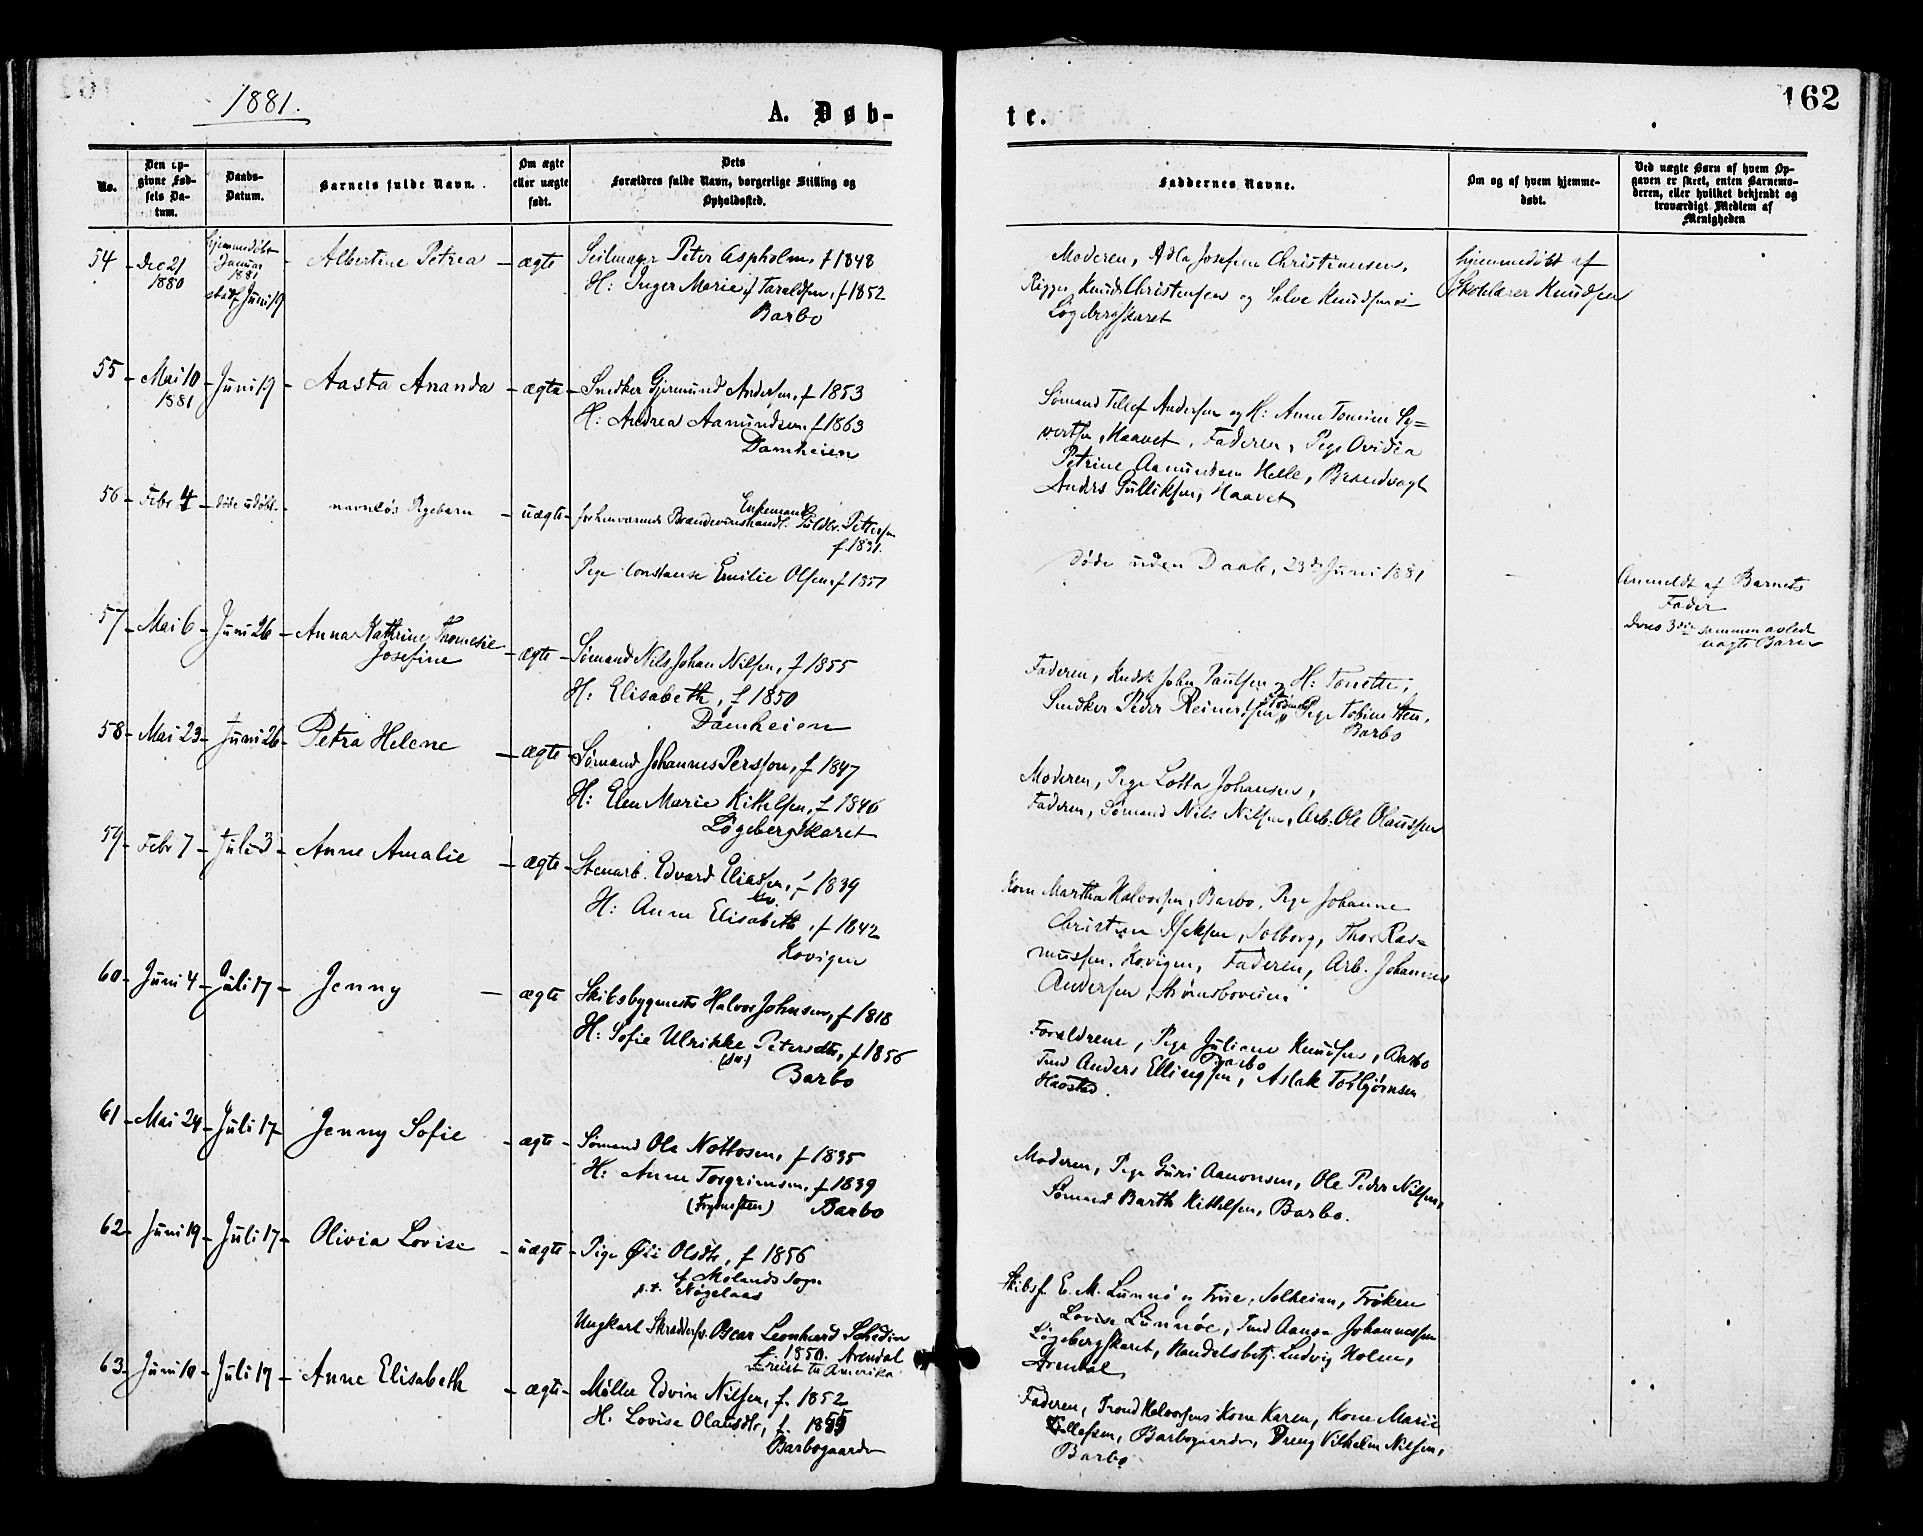 1881.
A. Døb-
te.
162
No.
Den op-
givne Fød-
sels Da-
tum.
Daabs-
Datum.
Barnets fulde Navn.
Om ægte
eller uægte
født.
Dets
Forældres fulde Navn, borgerlige Stilling og
Opholdssted.
Faddernes Navne.
Om og af hvem hjemme-
døbt.
Ved uægte Børn af hvem Op-
gaven er skeet, enten Barnemo-
deren, eller hvilket bekjendt og
troværdigt Medlem af
Menigheden
54
Dec 21
1880
hjemmedøbt
Januar
1881
stadf. Juni 19
Albertine Petrea
ægte
Seilmager Peter Aspholm, f 1848
H: Inger Marie Taraldsen, f 1852
Barbo
Moderen, Adla Josefine Christiansen,
Rigger Knud Christensen og Salve Knudsen
Løgebergskaret
hjemmedøbt af
Skolelærer Knudsen
55
Mai 10
1881
Juni 19
Aasta Ananda
ægte
Snedker Gjermund Andersen, f 1853
H: Andrea Aamundsen, f 1863
Damheien
Sømand Tellef Andersen og H: Anne Tomine Sy=
vertsen, Haavet, Faderen, Pige Ovidia
Petrine Aamundsen Helle, Brandvagt
Anders Gulliksen, Haavet
56
Febr 4
døde udøbt
navnløs Pigebarn
uægte
Enkemand
forhenværende Brændevinshandl. Guldbr. Pettersen
f. 1831.
Pige Constance Emilie Olsen, f 1851
døde uden Daab, 23de Juni 1881
Anmeldt af Barnets
Fader
deres 3die sammen avlede
uægte Barn
57
Mai 6
Juni 26
Anna Kathrine Thomesie
Josefine
ægte
Sømand Nils Johan Nilsen, f 1855
H: Elisabeth, f 1850
Damheien
Faderen, Kudsk John Paulsen og H: Tonette,
Snedker Peder Reinertsen, Pige Tobine Sten,
Barbo
58
Mai 23
Juni 26
Petra Helene
ægte
Sømand Johannes Persson, f 1847
H: Elen Marie Kittelsen, f 1846
Løgebergskaret
Moderen, Pige Lotta Johansen,
Faderen, Sømand Nils Nilsen, Arb. Ole Olaussen
59
Febr 7
Juli 3
Anne Amalie
ægte
Stenarb. Edvard Eliassen, f 1839
H: Anne Elisabeth, f 1842
Kovigen
Kone Martha Halvorsen, Barbo, Pige Johanne
Christine Isaksen, Solborg, Thor Ras=
mussen, Kovigen, Faderen, Arb. Johannes
Andersen, Strømsboveien
60
Juni 4
Juli 17
Jenny
ægte
Skibsbygmester Halvor Johnsen, f 1818
H: Sofie Ulrikke Petersdtr, f 1856
Barbo
Forældrene, Pige Juliane Knudsen, Barbo
Tmd Anders Ellingsen, Barbo, Aslak Torbjørnsen
Haastad.
61
Mai 24
Juli 17
Jenny Sofie
ægte
Sømand Ole Nottosen, f 1835
H: Anne Torgrimsen, f 1839
Barbo
Moderen, Pige Guri Aanonsen, Ole Peder Nilsen,
Sømand Barth Kittelsen, Barbo.
62
Juni 19
Juli 17
Olivia Lovise
uægte
Pige Olsdtr, f 1856
af Molands Sogn
p.t. Nøgelaas
Ungkarl Skræddersv. Oscar Leonhard Schedin
f. 1850. Arendal
reist til Amerika
Skibsf. E. M. Lunnø og Frue, Solheim, Frøken
Lovise Lunnøe, Tmd Aanon Johannessen
Løgebergskaret, Handelsbetj. Ludvig Holm,
Arendal
63
Juni 10
Juli 17
Anne Elisabeth
ægte
Møller Edvin Nilsen, f. 1852
H: Lovise Olausdtr, f. 1855
Barbogaarden
Faderen, Trond Halvorsens Kone Karen, Kone Marie
Tellefsen, Barbogaarden, Dreng Vilhelm Nilsen,
Barbo